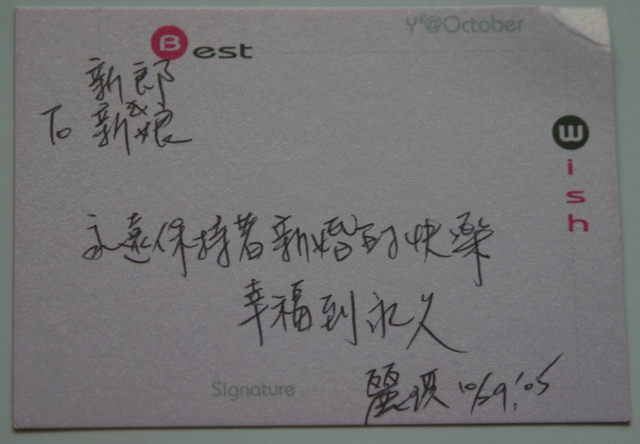 Best
Y²@October
新郎
&
To 新娘
Wish
永遠保持著新婚的快樂
幸福到永久
Signature
麗瑛 10/29'05